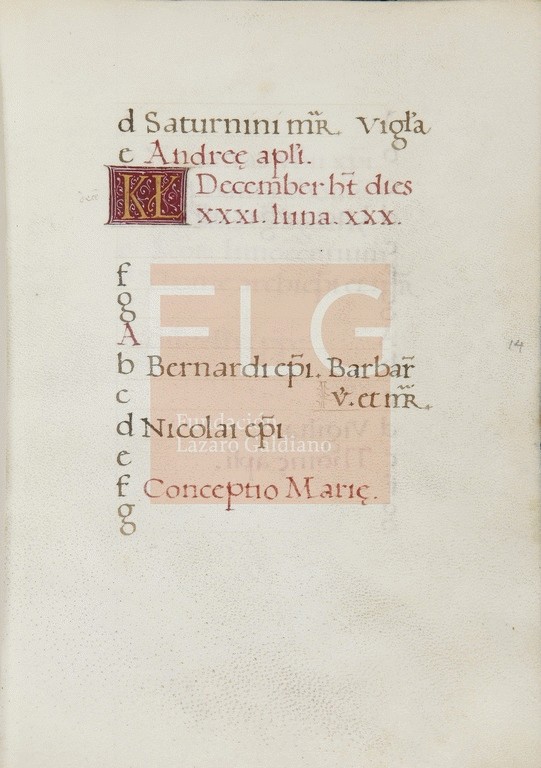 d Saturnini mr̃. Vigl'a
e Andreę apl'i.
KL December ht̃ dies
xxxi. luna. xxx.
f
g
A
b Bernardi ep̃i. Barbar̃
c v̓. et mr̃.
d Nicolai ep̃i
e
f Conceptio Marię.
g
14
FLG
Fundación
Lázaro Galdiano